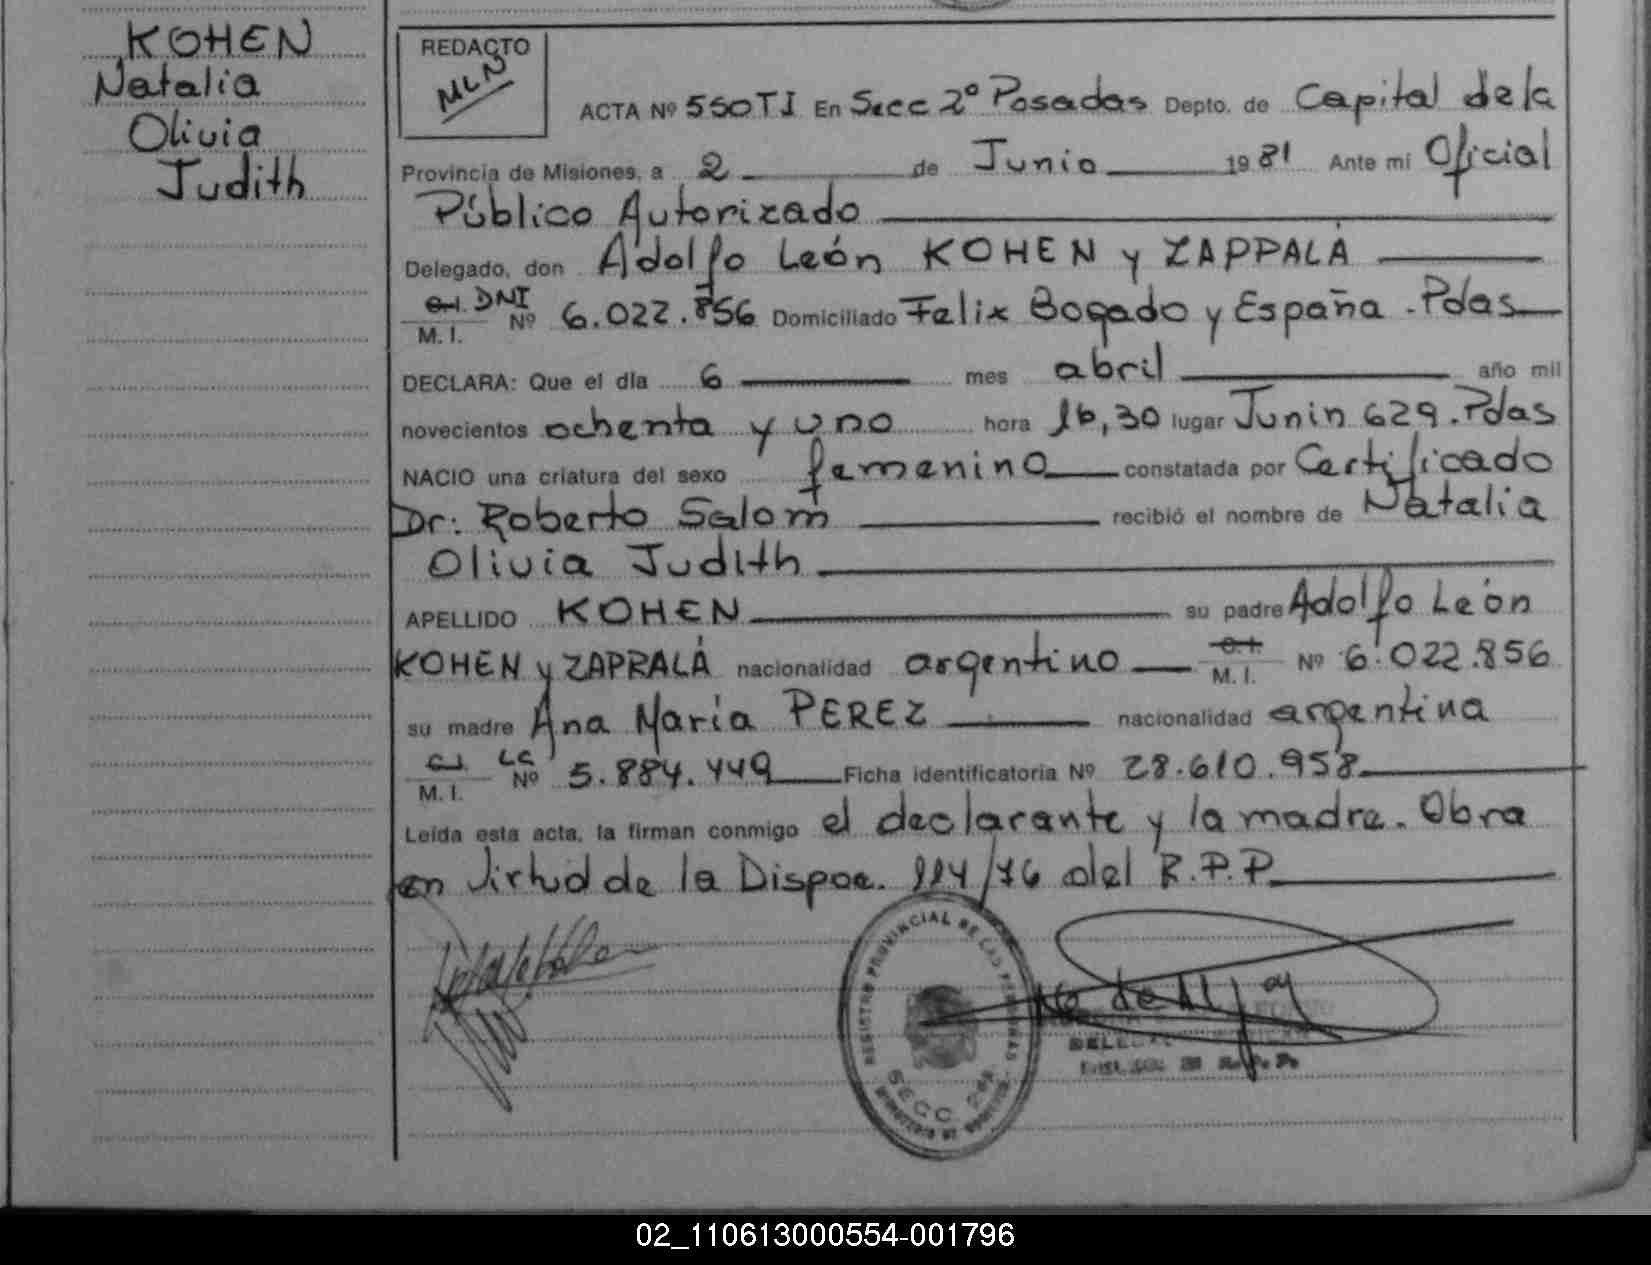 KOHEN
Natalia
Olivia
Judith
REDACTO
MLN
ACTA Nº 550TI En Secc 2º Posadas Depto. de Capital de la
Provincia de Misiones, a 2 de Junio 1981 Ante mi Oficial
Público Autorizado
Delegado, don Adolfo León KOHEN y ZAPPALÁ
C.I. DNI
M. I. Nº 6.022.856 Domiciliado Felix Bogado y España. Pdas
DECLARA: Que el dia 6 mes abril año mil
novecientos ochenta y uno hora 16,30 lugar Junin 629. Pdas
NACIO una criatura del sexo femenino constatada por Certificado
Dr: Roberto Salom recibió el nombre de Natalia
Olivia Judith
APELLIDO KOHEN su padre Adolfo León
KOHEN y ZAPPALÁ nacionalidad argentino C.I. M. I. Nº 6.022.856
su madre Ana María PEREZ nacionalidad argentina
C.I. LC
M. I. Nº 5.884.449 Ficha identificatoria Nº 28.610.958
Leída esta acta, la firman conmigo el declarante y la madre. Obra
en virtud de la Dispoc. 114/76 del R.P.P.
REGISTRO PROVINCIAL DE LAS PERSONAS
SECC. 2da
02_110613000554-001796